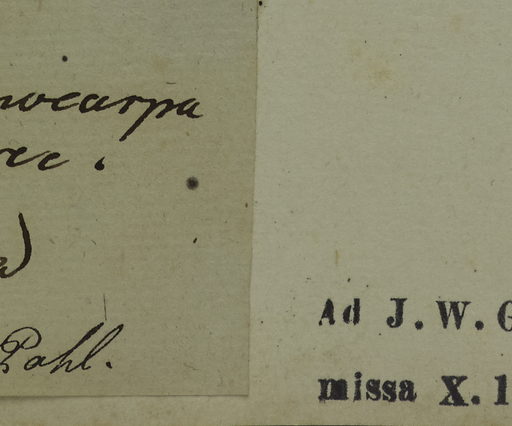 nocarpa
Pohl.
Ad J. W. G
missa X. 1